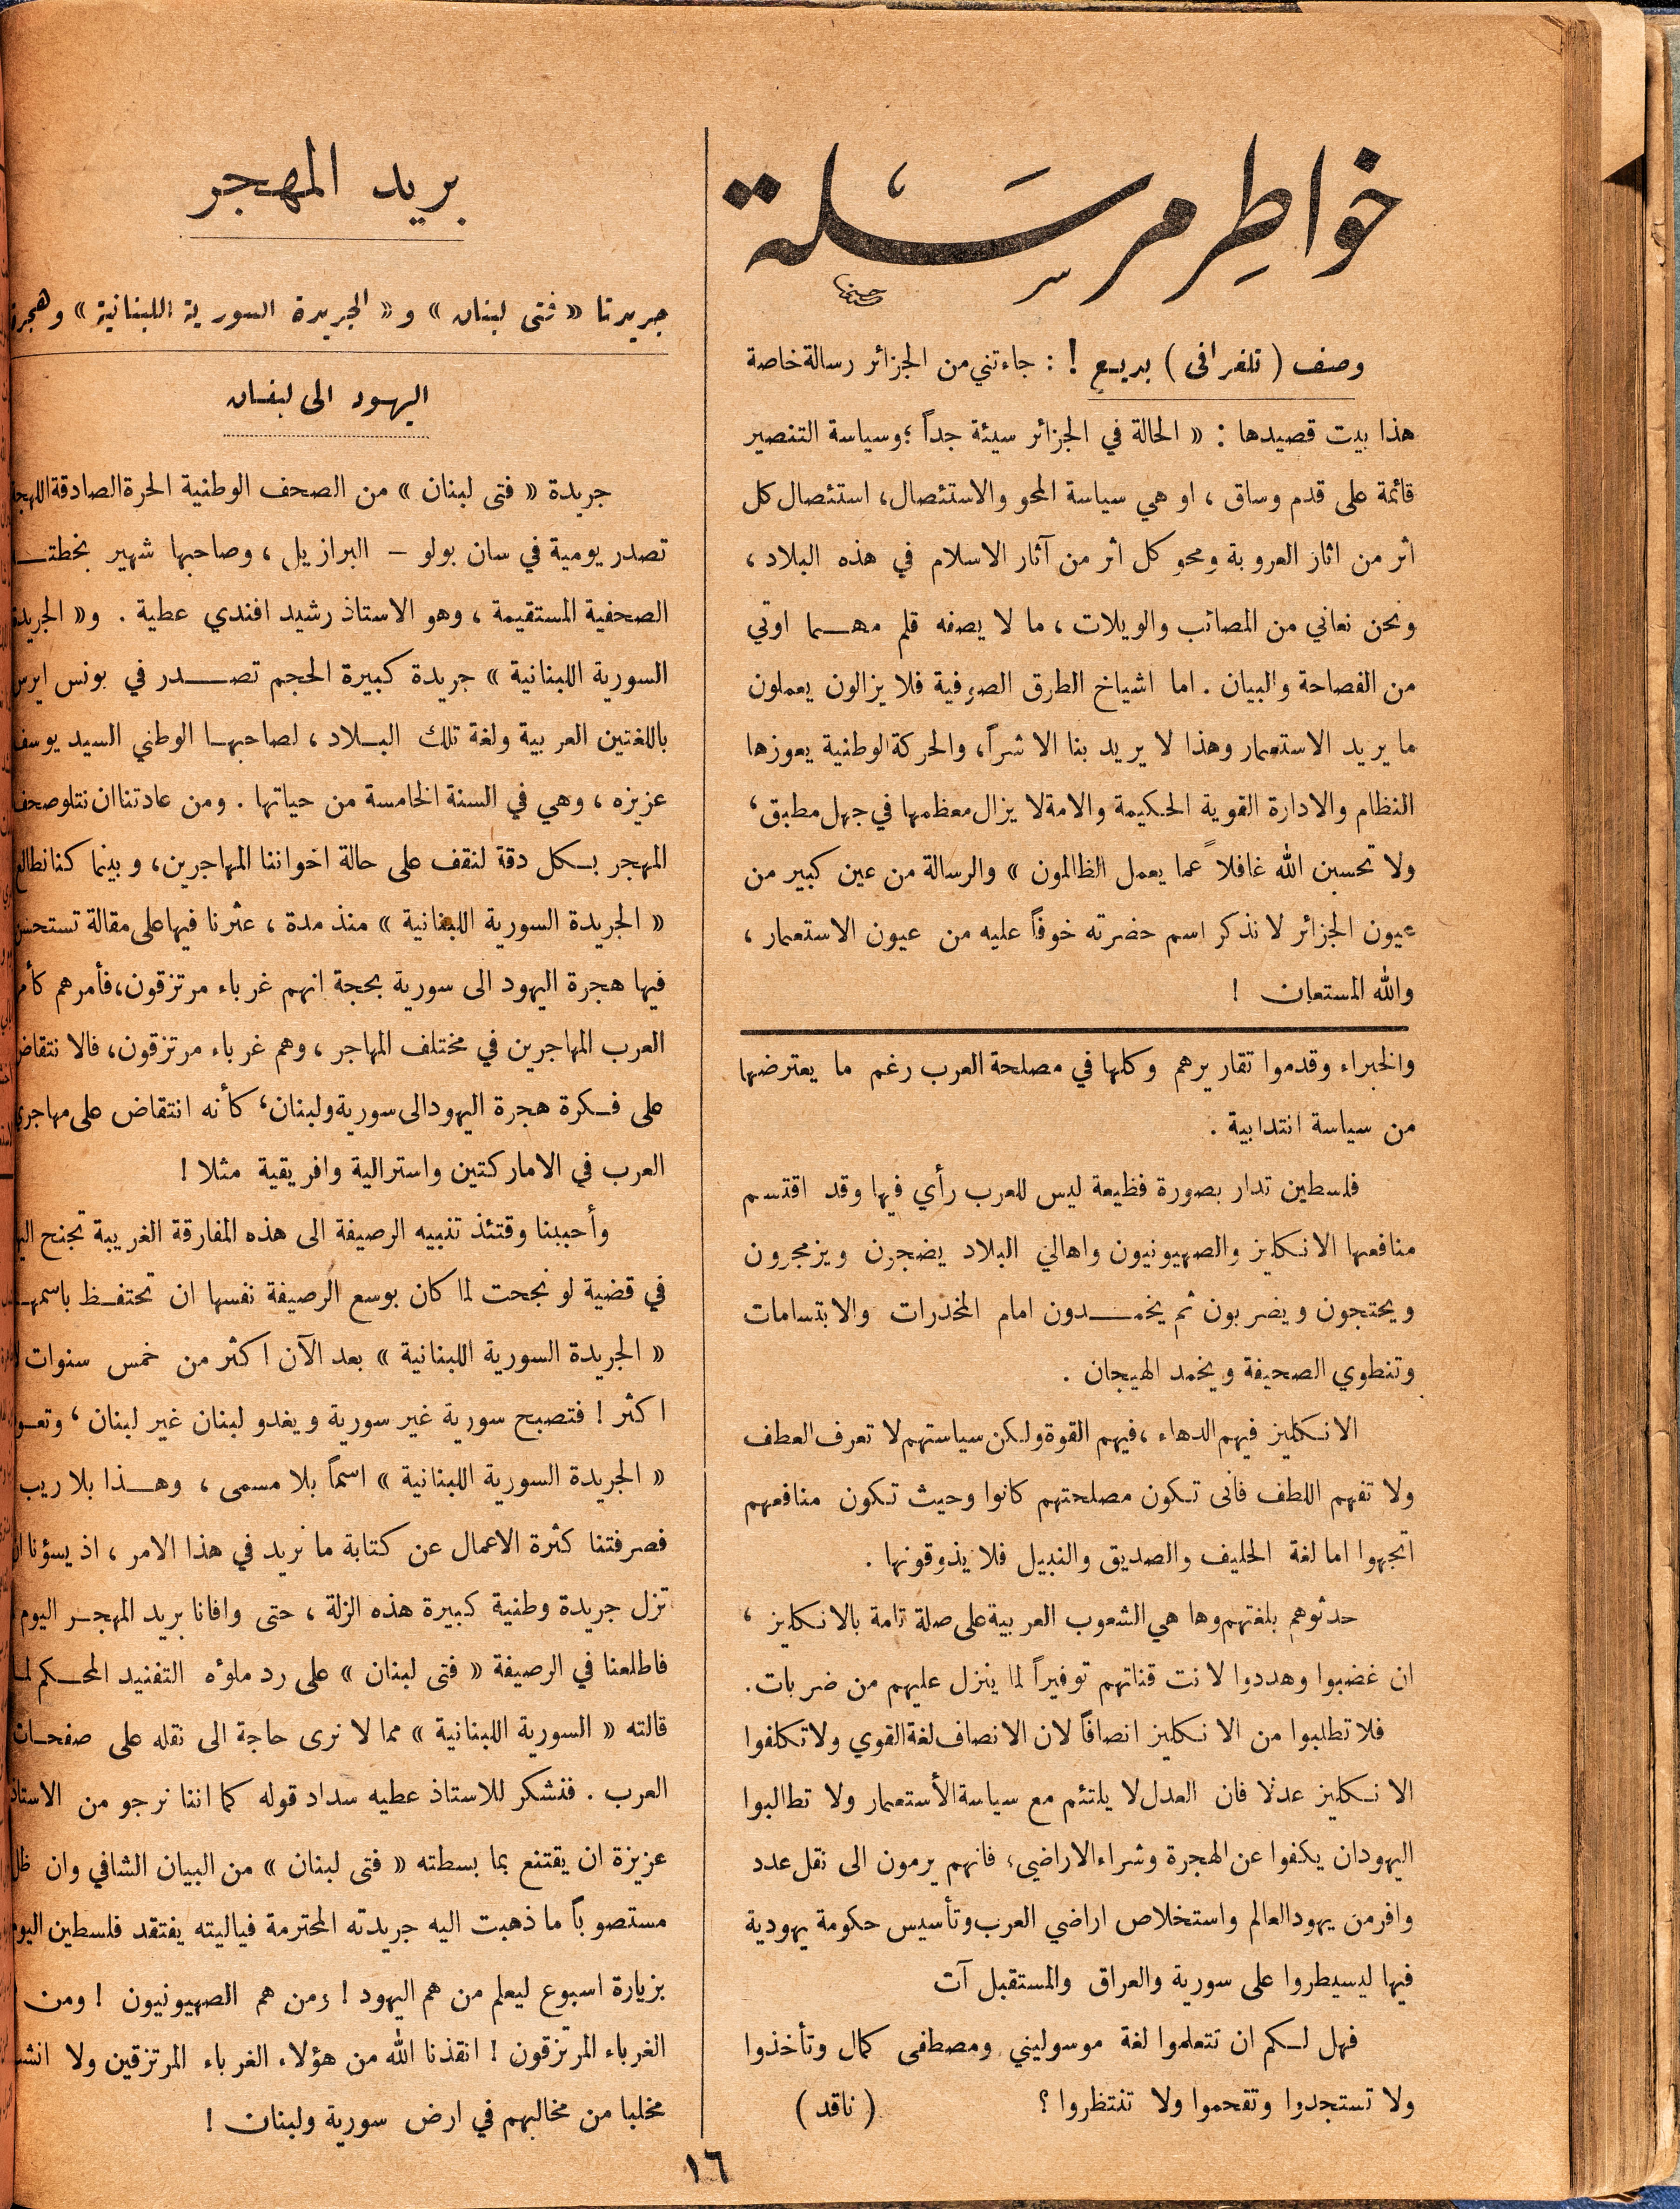 خواطر مرسلة
وصف ( تلغرافي ) بديع ! : جاءتني من الجزائر رسالة خاصة
هذا بيت قصيدها : « الحالة في الجزائر سيئة جداً ؛ وسياسة التنصير
قائمة على قدم وساق ، او هي سياسة المحو والاستئصال ، استئصال كل
اثر من اثار العروبة ومحو كل اثر من آثار الاسلام في هذه البلاد ،
ونحن نعاني من المصائب والويلات ، ما لا يصفه قلم مهما اوتي
من الفصاحة والبيان . اما اشياخ الطرق الصوفية فلا يزالون يعملون
ما يريد الاستعمار وهذا لا يريد بنا الا شراً ، والحركة الوطنية يعوزها
النظام والادارة القوية الحكيمة والامة لا يزال معظمها في جهل مطبق ،
ولا تحسبن الله غافلاً عما يعمل الظالمون » والرسالة من عين كبير من
عيون الجزائر لا نذكر اسم حضرته خوفاً عليه من عيون الاستعمار ،
والله المستعان !
والخبراء وقدموا تقاريرهم وكلها في مصلحة العرب رغم ما يعترضها
من سياسة انتدابية .
فلسطين تدار بصورة فظيعة ليس للعرب رأي فيها وقد اقتسم
منافعها الانكليز والصهيونيون واهالي البلاد يضجون ويزمجرون
ويحتجون ويضربون ثم يخمدون امام المخدرات والابتسامات
وتنطوي الصحيفة ويخمد الهيجان .
الانكليز فيهم الدهاء ، فيهم القوة ولكن سياستهم لا تعرف العطف
ولا تفهم اللطف فأنى تكون مصلحتهم كانوا وحيث تكون منافعهم
اتجهوا اما لغة الحليف والصديق والنبيل فلا يذوقونها .
حدثوهم بلغتهم وها هي الشعوب العربية على صلة تامة بالانكليز ،
ان غضبوا وهددوا لانت قناتهم توفيراً لما ينزل عليهم من ضربات .
فلا تطلبوا من الانكليز انصافاً لان الانصاف لغة القوي ولا تكلفوا
الانكليز عدلا فان العدل لا يلتئم مع سياسة الأستعمار ولا تطالبوا
اليهود ان يكفوا عن الهجرة وشراء الاراضي ، فانهم يرمون الى نقل عدد
وافر من يهود العالم واستخلاص اراضي العرب وتأسيس حكومة يهودية
فيها ليسيطروا على سورية والعراق والمستقبل آت
فهل لكم ان تتعلموا لغة موسوليني ومصطفى كمال وتأخذوا
ولا تستجدوا وتقحموا ولا تنتظروا ؟ ( ناقد )
بريد المهجر
جريدتا « فتى لبنان » و « الجريدة السورية اللبنانية » وهجرة
اليهود الى لبنان
جريدة « فتى لبنان » من الصحف الوطنية الحرة الصادقة اللهجة
تصدر يومية في سان بولو - البرازيل ، وصاحبها شهير بخطته
الصحفية المستقيمة ، وهو الاستاذ رشيد افندي عطية . و « الجريدة
السورية اللبنانية » جريدة كبيرة الحجم تصدر في بونس ايرس
باللغتين العربية ولغة تلك البلاد ، لصاحبها الوطني السيد يوسف
عزيزه ، وهي في السنة الخامسة من حياتها . ومن عادتنا ان نتلو صحف
المهجر بكل دقة لنقف على حالة اخواننا المهاجرين ، وبينما كنا نطالع
« الجريدة السورية اللبنانية » منذ مدة ، عثرنا فيها على مقالة تستحسن
فيها هجرة اليهود الى سورية بحجة انهم غرباء مرتزقون ، فأمرهم كأمر
العرب المهاجرين في مختلف المهاجر ، وهم غرباء مرتزقون ، فالانتقاض
على فكرة هجرة اليهود الى سورية ولبنان ، كأنه انتقاض على مهاجري
العرب في الاماركتين واسترالية وافريقية مثلا !
وأحببنا وقتئذ تنبيه الرصيفة الى هذه المفارقة الغريبة تجنح اليها
في قضية لو نجحت لما كان بوسع الرصيفة نفسها ان تحتفظ باسمها
« الجريدة السورية اللبنانية » بعد الآن اكثر من خمس سنوات
اكثر ! فتصبح سورية غير سورية ويغدو لبنان غير لبنان ،
« الجريدة السورية اللبنانية » اسماً بلا مسمى ، وهذا بلا ريب
فصرفتنا كثرة الاعمال عن كتابة ما نريد في هذا الامر ، اذ يسؤنا ان
تزل جريدة وطنية كبيرة هذه الزلة ، حتى وافانا بريد المهجر اليوم
فاطلعنا في الرصيفة « فتى لبنان » على رد ملؤه التفنيد المحكم لما
قالته « السورية اللبنانية » مما لا نرى حاجة الى نقله على صفحات
العرب . فنشكر للاستاذ عطيه سداد قوله كما اننا نرجو من الاستاذ
عزيزة ان يقتنع بما بسطته « فتى لبنان » من البيان الشافي وان ظل
مستصوباً ما ذهبت اليه جريدته المحترمة فياليته يفتقد فلسطين اليوم
بزيارة اسبوع ليعلم من هم اليهود ! ومن هم الصهيونيون ! ومن
الغرباء المرتزقون ! انقذنا الله من هؤلاء الغرباء المرتزقين ولا انشب
مخلبا من مخالبهم في ارض سورية ولبنان !
١٦